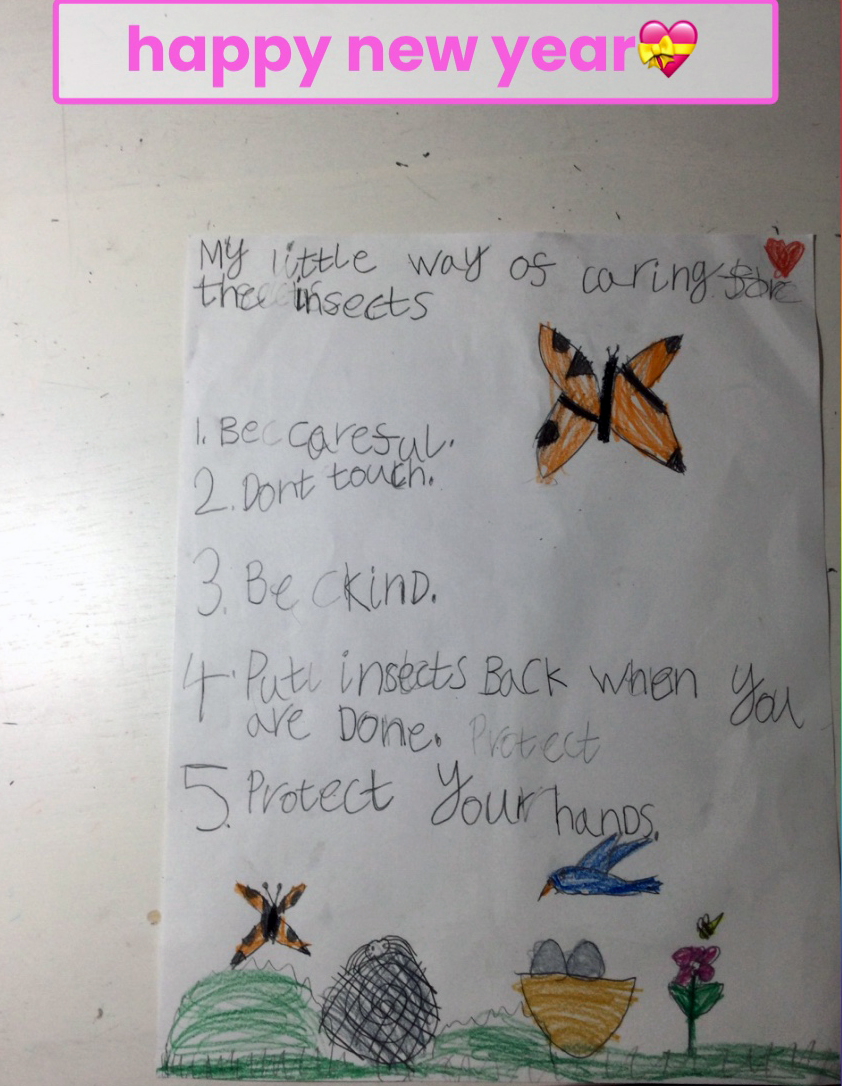 happy new year💝
My little way of caring fore
the insects
1. Be careful.
2. Dont touch.
3. Be kind.
4. Put insects Back when you
are Done. Protect
5. Protect your hands.